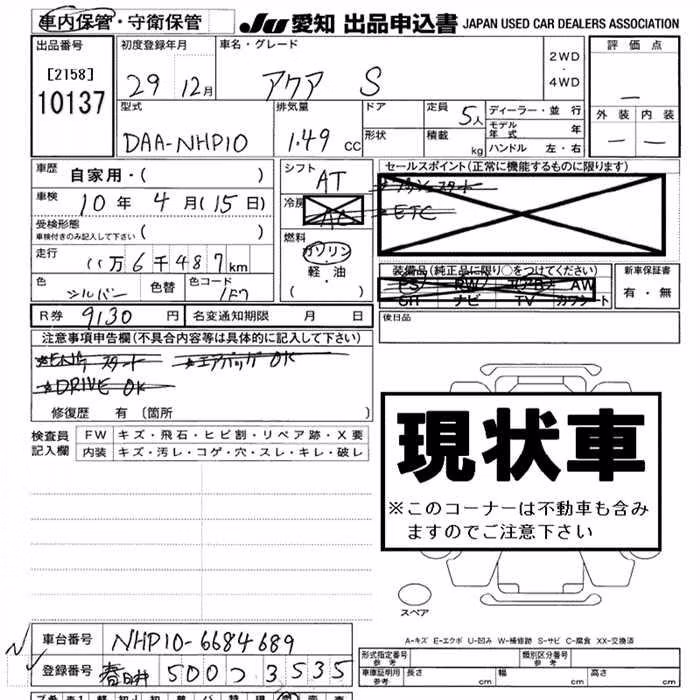 車内保管・守衛保管
JU 愛知 出品申込書 JAPAN USED CAR DEALERS ASSOCIATION
出品番号 初度登録年月 車名・グレード 評価点
[2158] 29 12月 アクア S 2WD・4WD
10137
外装 内装
型式 排気量 ドア 定員 5人 ディーラー・並行
DAA-NHP10 1.49 cc 形状 積載 kg モデル年式 年
ハンドル 左・右
車歴 自家用・( ) シフト AT セールスポイント(正常に機能するものに限ります)
車検 10年 4月(15日) 冷房 AC
ETC
受検形態 ( )
車検付きのみ記入して下さい
燃料 ガソリン・軽・油 ( )
走行 11万6千487km
装備品(純正品に限り○をつけてください) 新車保証書
PS PW エアB AW 有・無
SR ナビ TV カワシート
色 シルバー 色替 色コード 1F7
R券 9130円 名変通知期限 月 日 後日品
注意事項申告欄(不具合内容等は具体的に記入して下さい)
★ENG スタート ★エアバッグ OK
★DRIVE OK
修復歴 有〔箇所 〕
検査員記入欄 FW キズ・飛石・ヒビ割・リペア跡・X要
内装 キズ・汚レ・コゲ・穴・スレ・キレ・破レ
現状車
※このコーナーは不動車も含み
ますのでご注意下さい
スペア
A-キズ E-エクボ U-凹み W-補修跡 S-サビ C-腐食 XX-交換済
車台番号 NHP10-6684689
形式指定番号 参考 類別区分番号 参考
登録番号 春日井 500 つ 3535
車庫証明用 参考 長さ cm 幅 cm 高さ cm